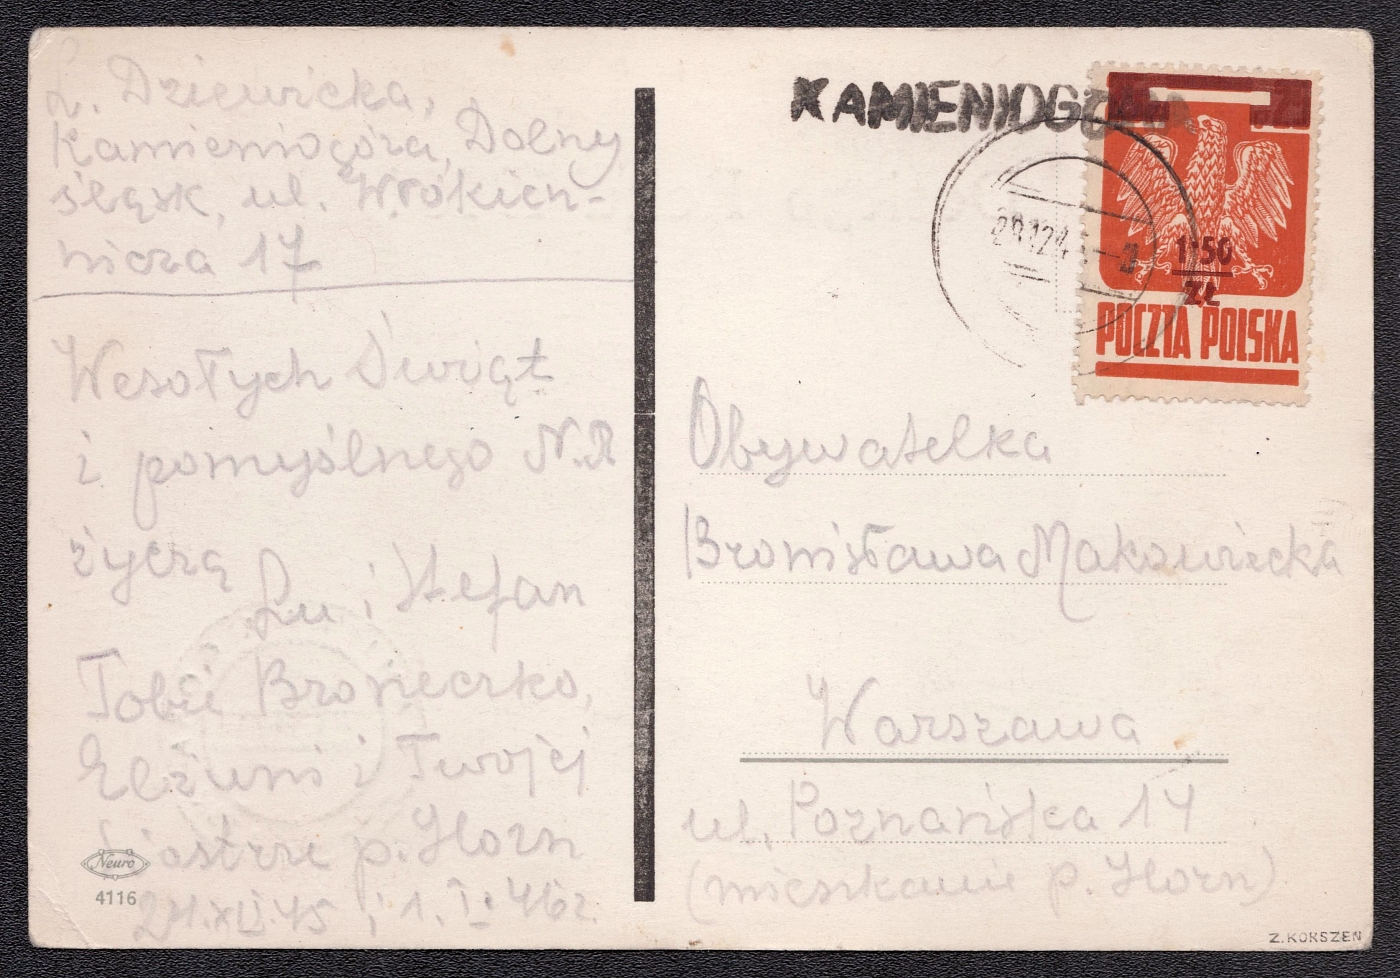 Ł. Dziewicka,
Kamieniogóra, Dolny
śląsk, ul. Włókien-
nicza 17
Wesołych Świąt
i pomyślnego N.R
życzą
Lu i Stefan
Tobie Bronieczko,
Elżuni i Twojej
Siostrze p. Horn
24.XII.45 i 1.I.46r.
Neuro
4116
KAMIENIOGÓRA
29.12.4 -- 2
1·50
ZŁ
POCZTA POLSKA
Obywatelka
Bronisława Makowiecka
Warszawa
ul. Poznańska 14
(mieszkanie p. Horn)
Z. KORSZEN